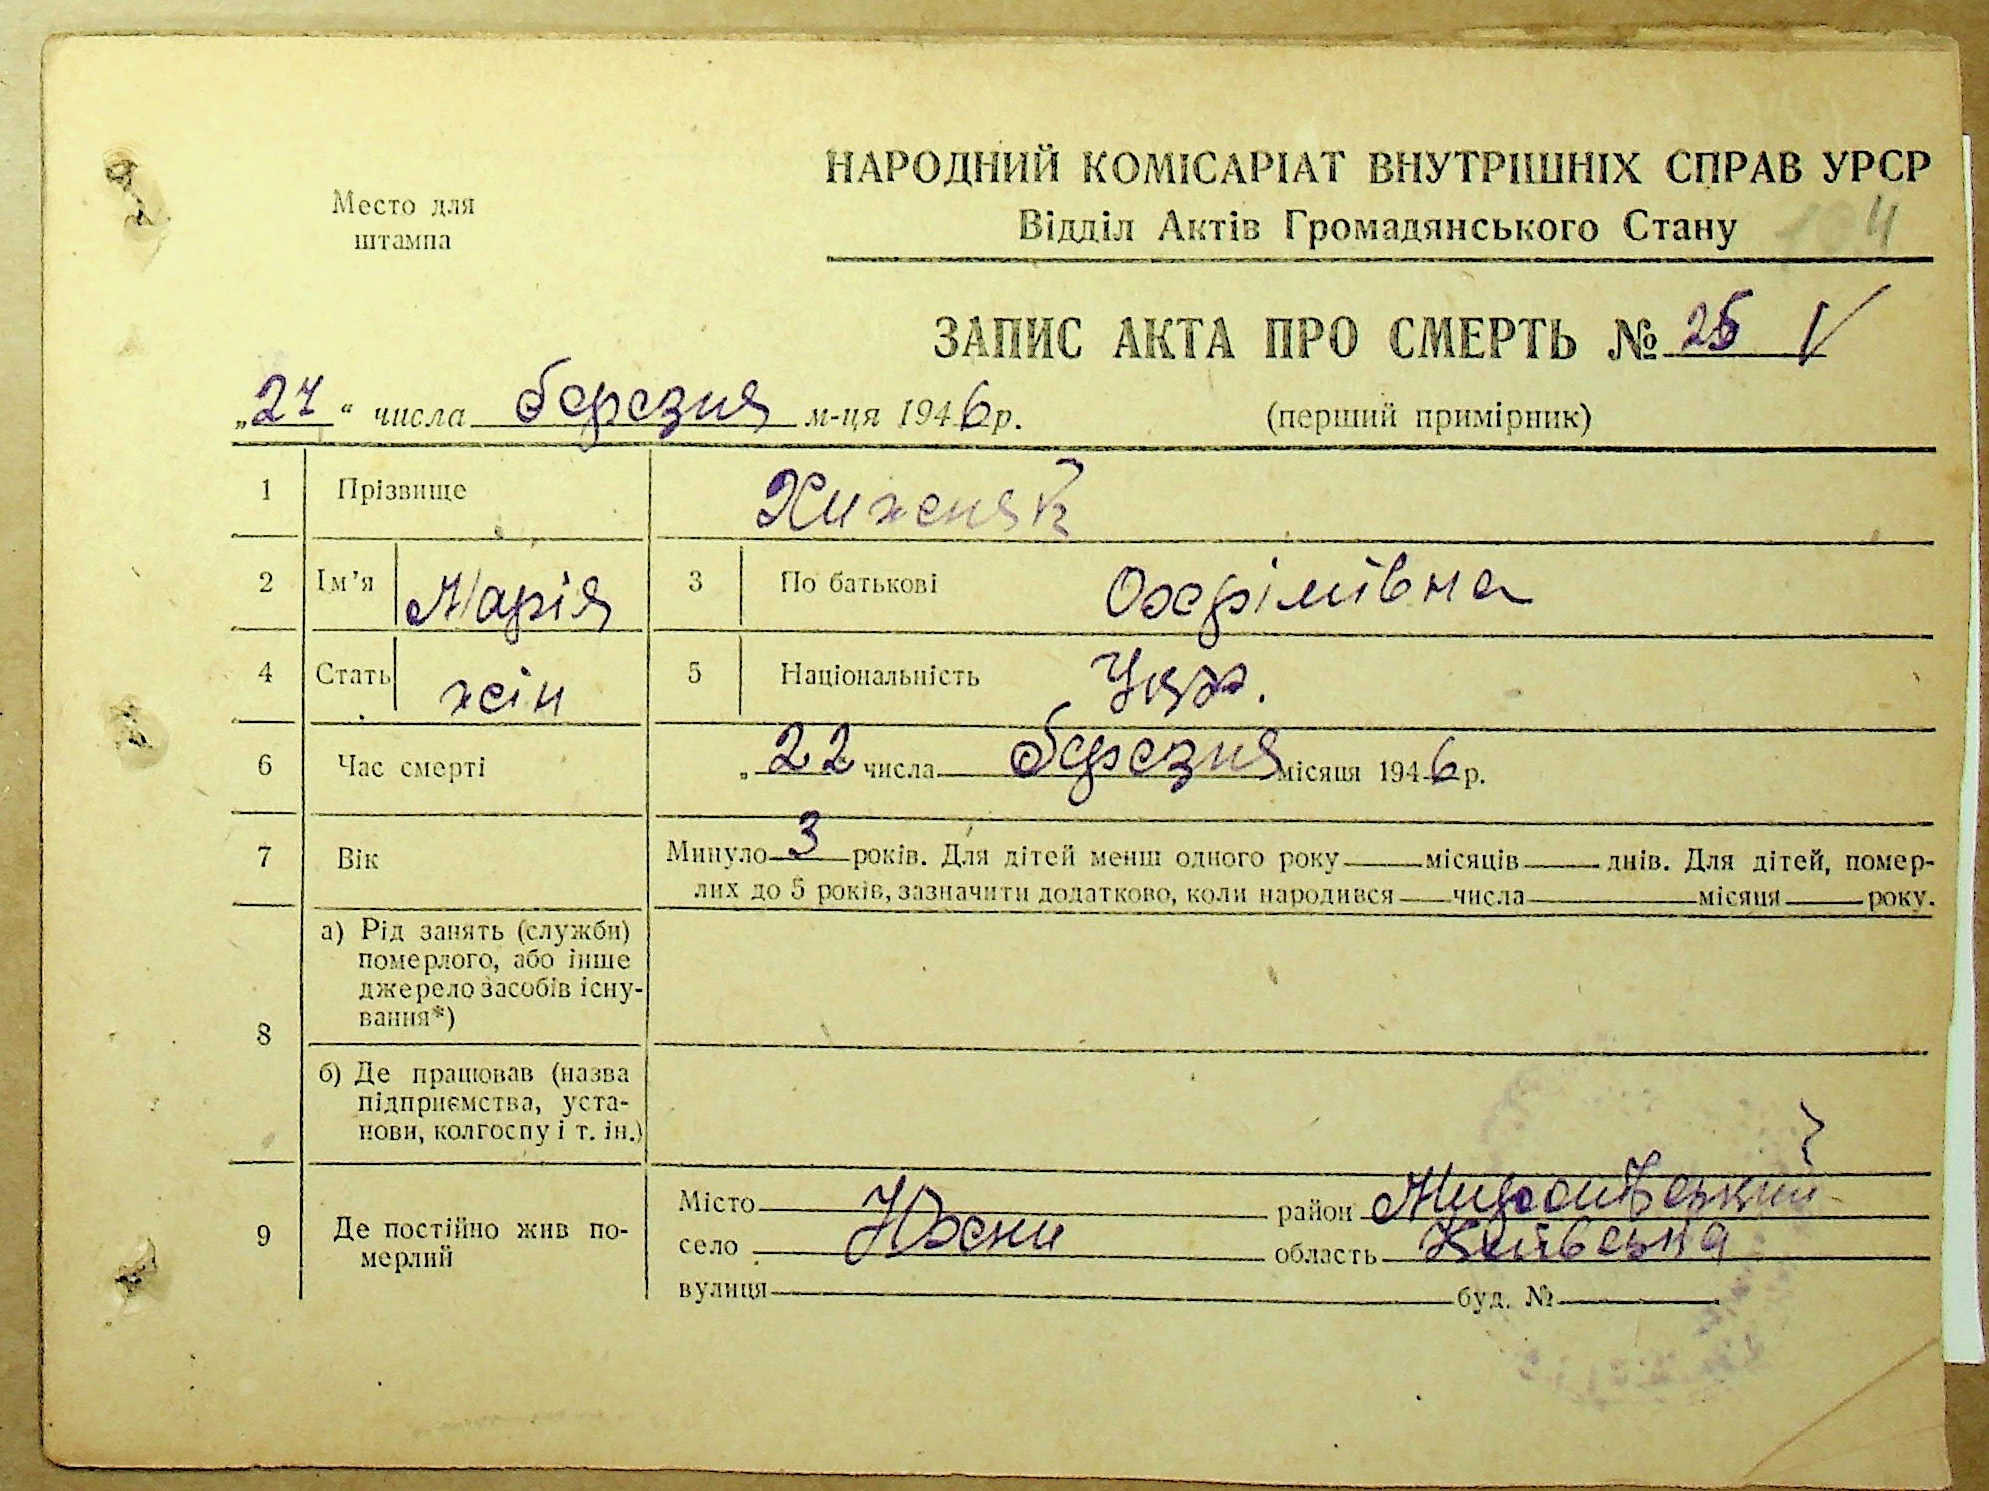 НАРОДНИЙ КОМІСАРІАТ ВНУТРІШНІХ СПРАВ УРСР
Место для штампа
Відділ Актів Громадянського Стану
ЗАПИС АКТА ПРО СМЕРТЬ №
„ “ числа березня м-ця 1946 р. (перший примірник)
1 Прізвище Хиженяк
2 Ім'я Марія 3 По батькові Охрімівна
4 Стать жін 5 Національність Укр.
6 Час смерті „22 числа березня місяця 1946 р.
7 Вік Минуло 3 років. Для дітей менш одного року місяців днів. Для дітей, помер-
лих до 5 років, зазначити додатково, коли народився числа місяця року.
8 а) Рід занять (служби)
померлого, або інше
джерело засобів існу-
вання*)
б) Де працював (назва
підприємства, уста-
нови, колгоспу і т. ін.)
9 Де постійно жив по-
мерлий
Місто район Миронівський
село Юхни область Київська
вулиця буд. №